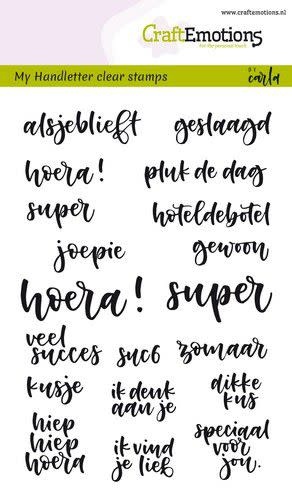 www.craftemotions.nl
CraftEmotions
for the personal touch
My Handletter clear stamps
BY carla
alsjeblieft geslaagd
hoera! pluk de dag
super hoteldebotel
joepie gewoon
hoera! super
veel
succes
suc6
zomaar
kusje
ik denk
aan je
dikke
kus
hiep
hiep
hoera
ik vind
je lief
speciaal
voor
jou.